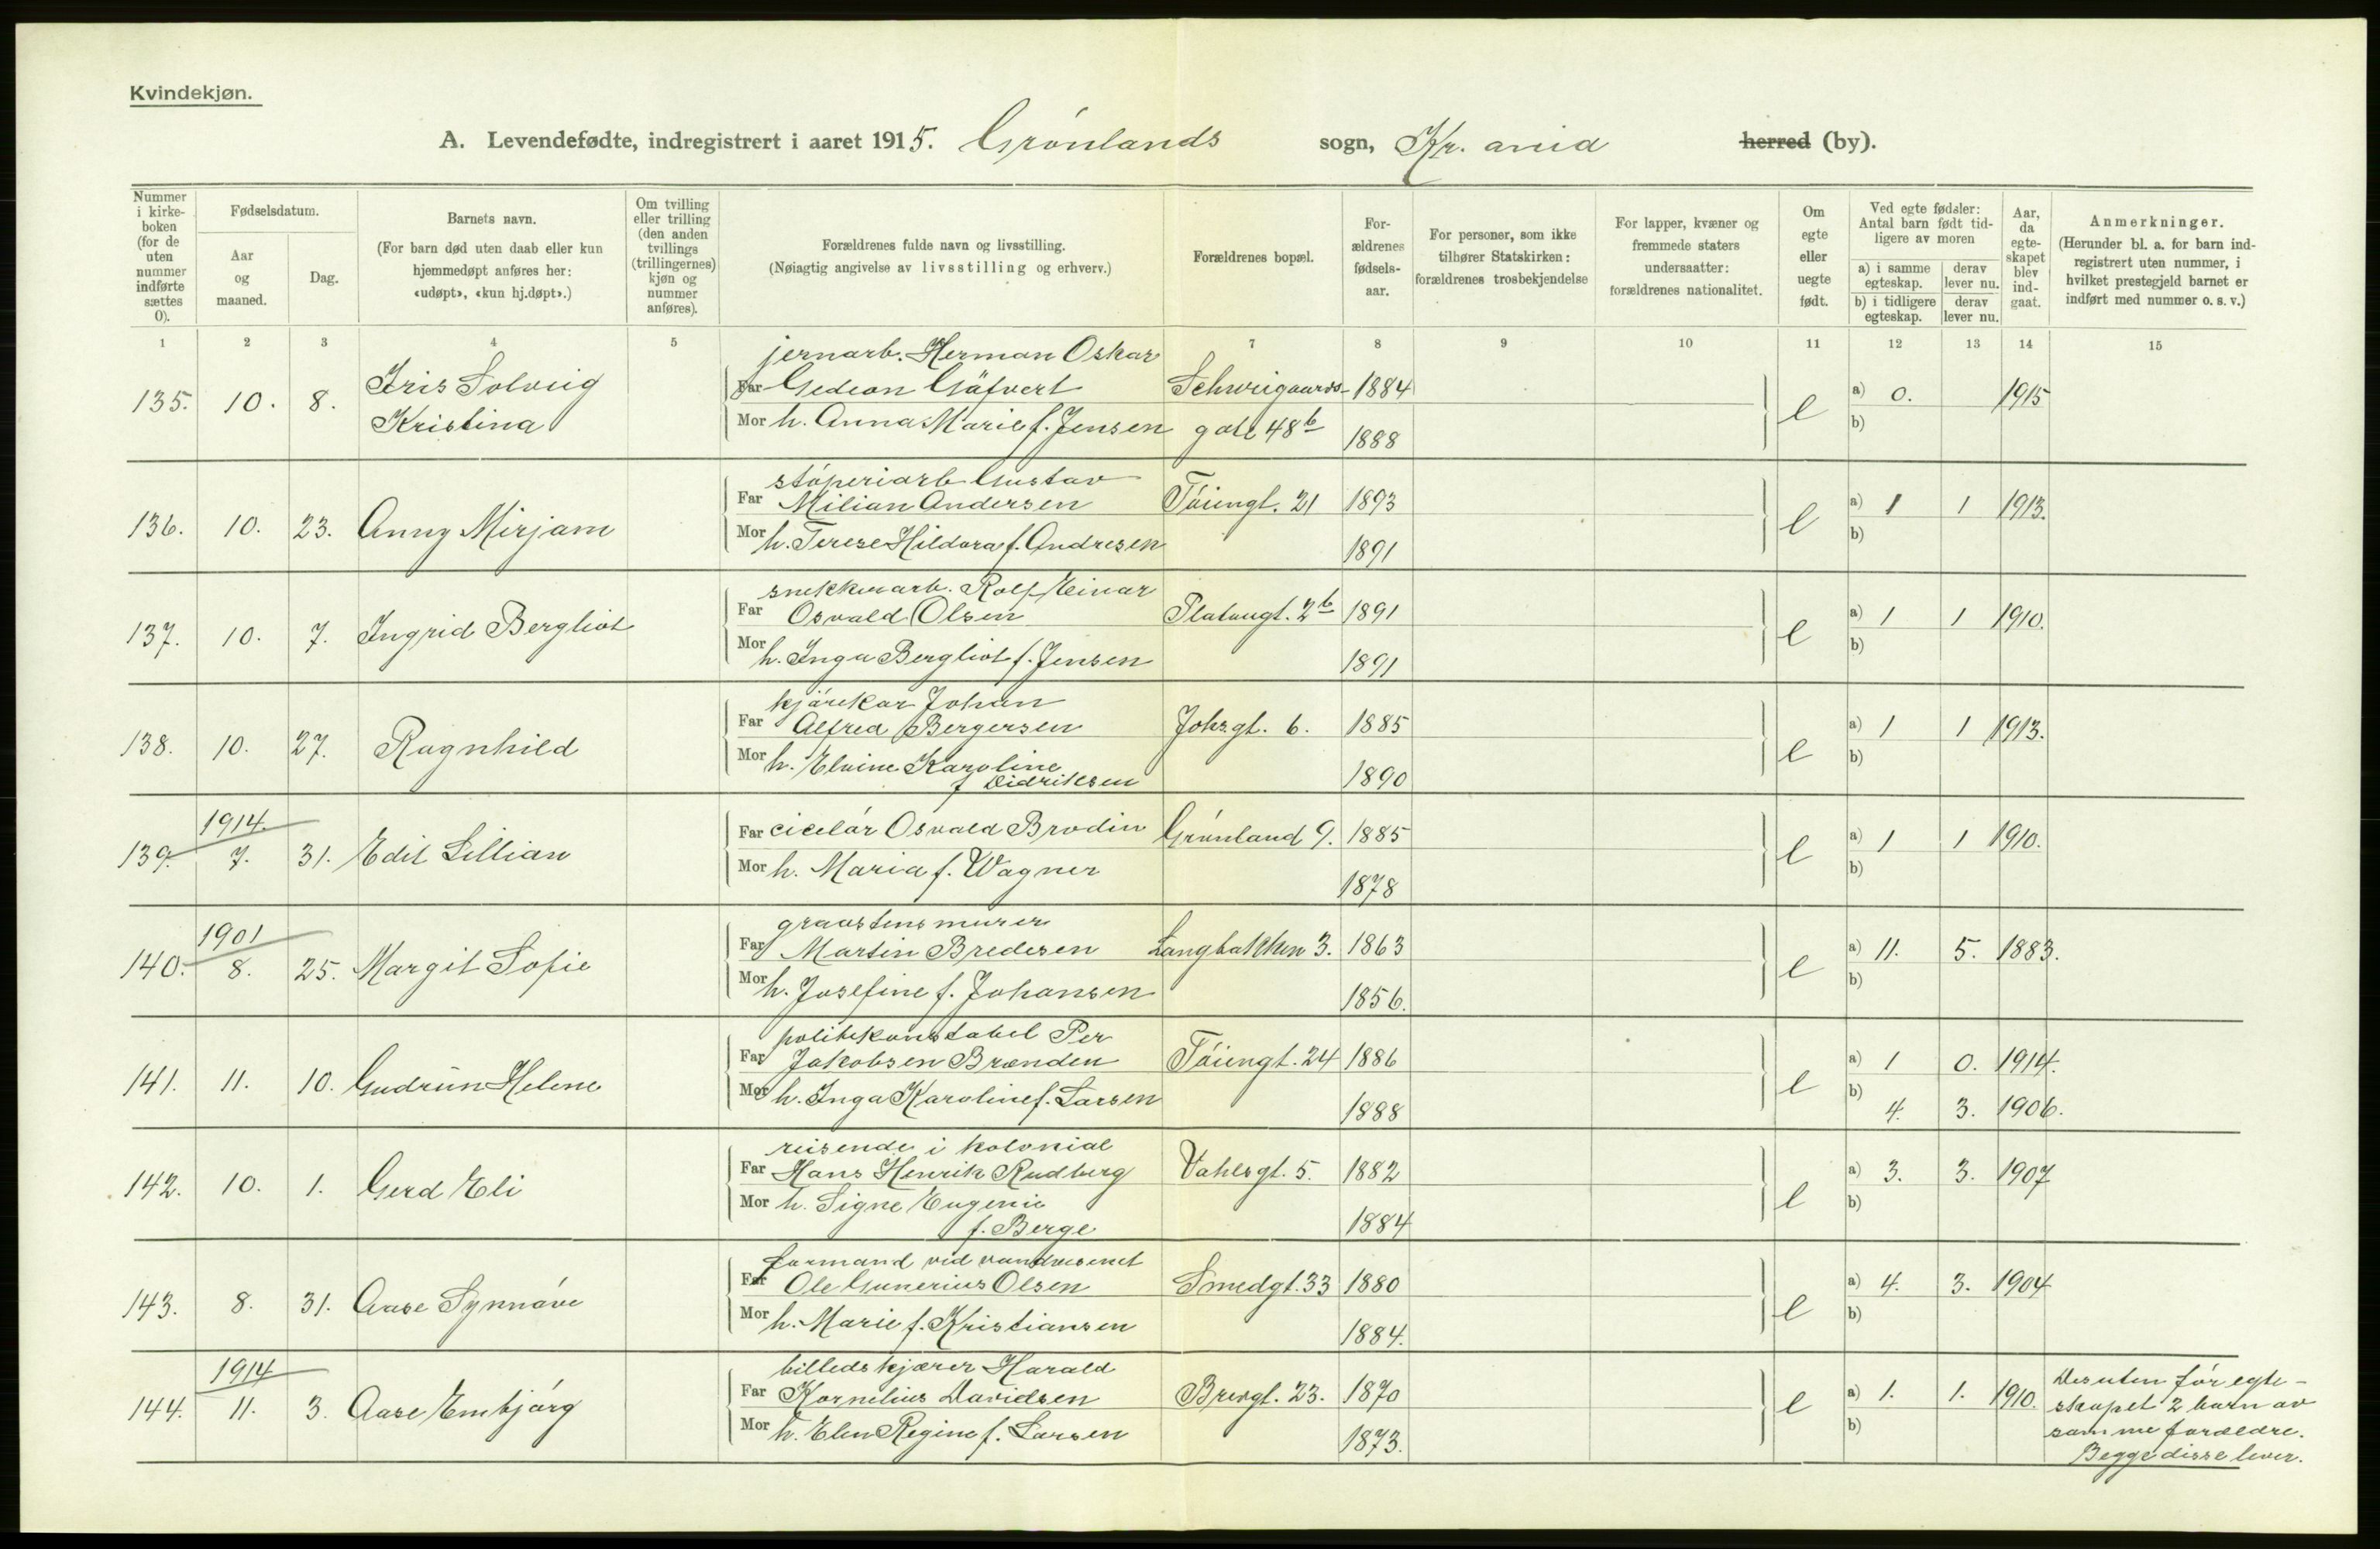 Kvindekjøn.
A. Levendefødte, indregistrert i aaret 1915. Grønlands sogn, Kr. ania herred (by).
Nummer i kirkeboken (for de uten nummer indførte sættes 0).
Fødselsdatum.
Aar og maaned.
Dag.
Barnets navn.
(For barn død uten daab eller kun hjemmedøpt anføres her: «udøpt», «kun hj.døpt».)
Om tvilling eller trilling (den anden tvillings (trillingernes) kjøn og nummer anføres).
Forældrenes fulde navn og livsstilling.
(Nøiagtig angivelse av livsstilling og erhverv.)
Forældrenes bopæl.
For-ældrenes fødsels-aar.
For personer, som ikke tilhører Statskirken: forældrenes trosbekjendelse
For lapper, kvæner og fremmede staters undersaatter: forældrenes nationalitet.
Om egte eller uegte født.
Ved egte fødsler: Antal barn født tid-ligere av moren
a) i samme egteskap. derav lever nu.
b) i tidligere egteskap. derav lever nu.
Aar, da egte-skapet blev ind-gaat.
Anmerkninger.
(Herunder bl. a. for barn ind-registrert uten nummer, i hvilket prestegjeld barnet er indført med nummer o. s. v.)
1 2 3 4 5 7 8 9 10 11 12 13 14 15
jernarb. Herman Oskar
135. 10. 8. Iris Solveig Far Gedeon Gäfvert Schweigaards- 1884 e a) 0. 1915
Kristina Mor h. Anna Marie f. Jensen gate 48b 1888 b)
støperiarb. Gustav
136. 10. 23. Anny Mirjam Far Milian Andersen Tøiengt. 21 1893 e a) 1 1 1913.
Mor h. Terese Hildora f. Andresen 1891 b)
snekkerarb. Rolf Einar
137. 10. 7. Ingrid Bergliot Far Osvald Olsen Platougt. 2b 1891 e a) 1 1 1910.
Mor h. Inga Bergliot f. Jensen 1891 b)
kjørekar Johan
138. 10. 27. Ragnhild Far Alfred Bergersen Johs.gt. 6. 1885 e a) 1 1 1913.
Mor h. Elvine Karoline 1890 b)
f Didriksen
1914.
139. 7. 31. Edit Lillian Far ciselør Osvald Brodin Grønland 9. 1885 e a) 1 1 1910.
Mor h. Maria f. Wagner 1878 b)
1901 graastensmurer
140. 8. 25. Margit Sofie Far Martin Bredesen Langbakken 3. 1863 e a) 11. 5. 1883.
Mor h. Josefine f. Johansen 1856. b)
politikonstabel Per
141. 11. 10. Gudrun Helene Far Jakobsen Brænden Tøiengt. 24 1886 e a) 1 0. 1914.
Mor h. Inga Karoline f. Larsen 1888 b) 4. 3. 1906.
reisende i kolonial
142. 10. 1. Gerd Eli Far Hans Henrik Rudberg Vahlsgt. 5. 1882 e a) 3. 3. 1907
Mor h. Signe Eugenie b)
f. Berge 1884
formand ved vandvesenet
143. 8. 31. Aase Synnøve Far Ole Gunerius Olsen Smedgt. 33 1880 e a) 4. 3. 1904
Mor h. Marie f. Kristiansen 1884. b)
1914 billedskjærer Harald Desuten før egte-
144. 11. 3. Aase Embjørg Far Kornelius Davidsen Brevgt. 23. 1870 e a) 1. 1. 1910. skapet 2 barn av
Mor h. Elen Regine f. Larsen 1873. b) samme forældre.
Begge disse lever.